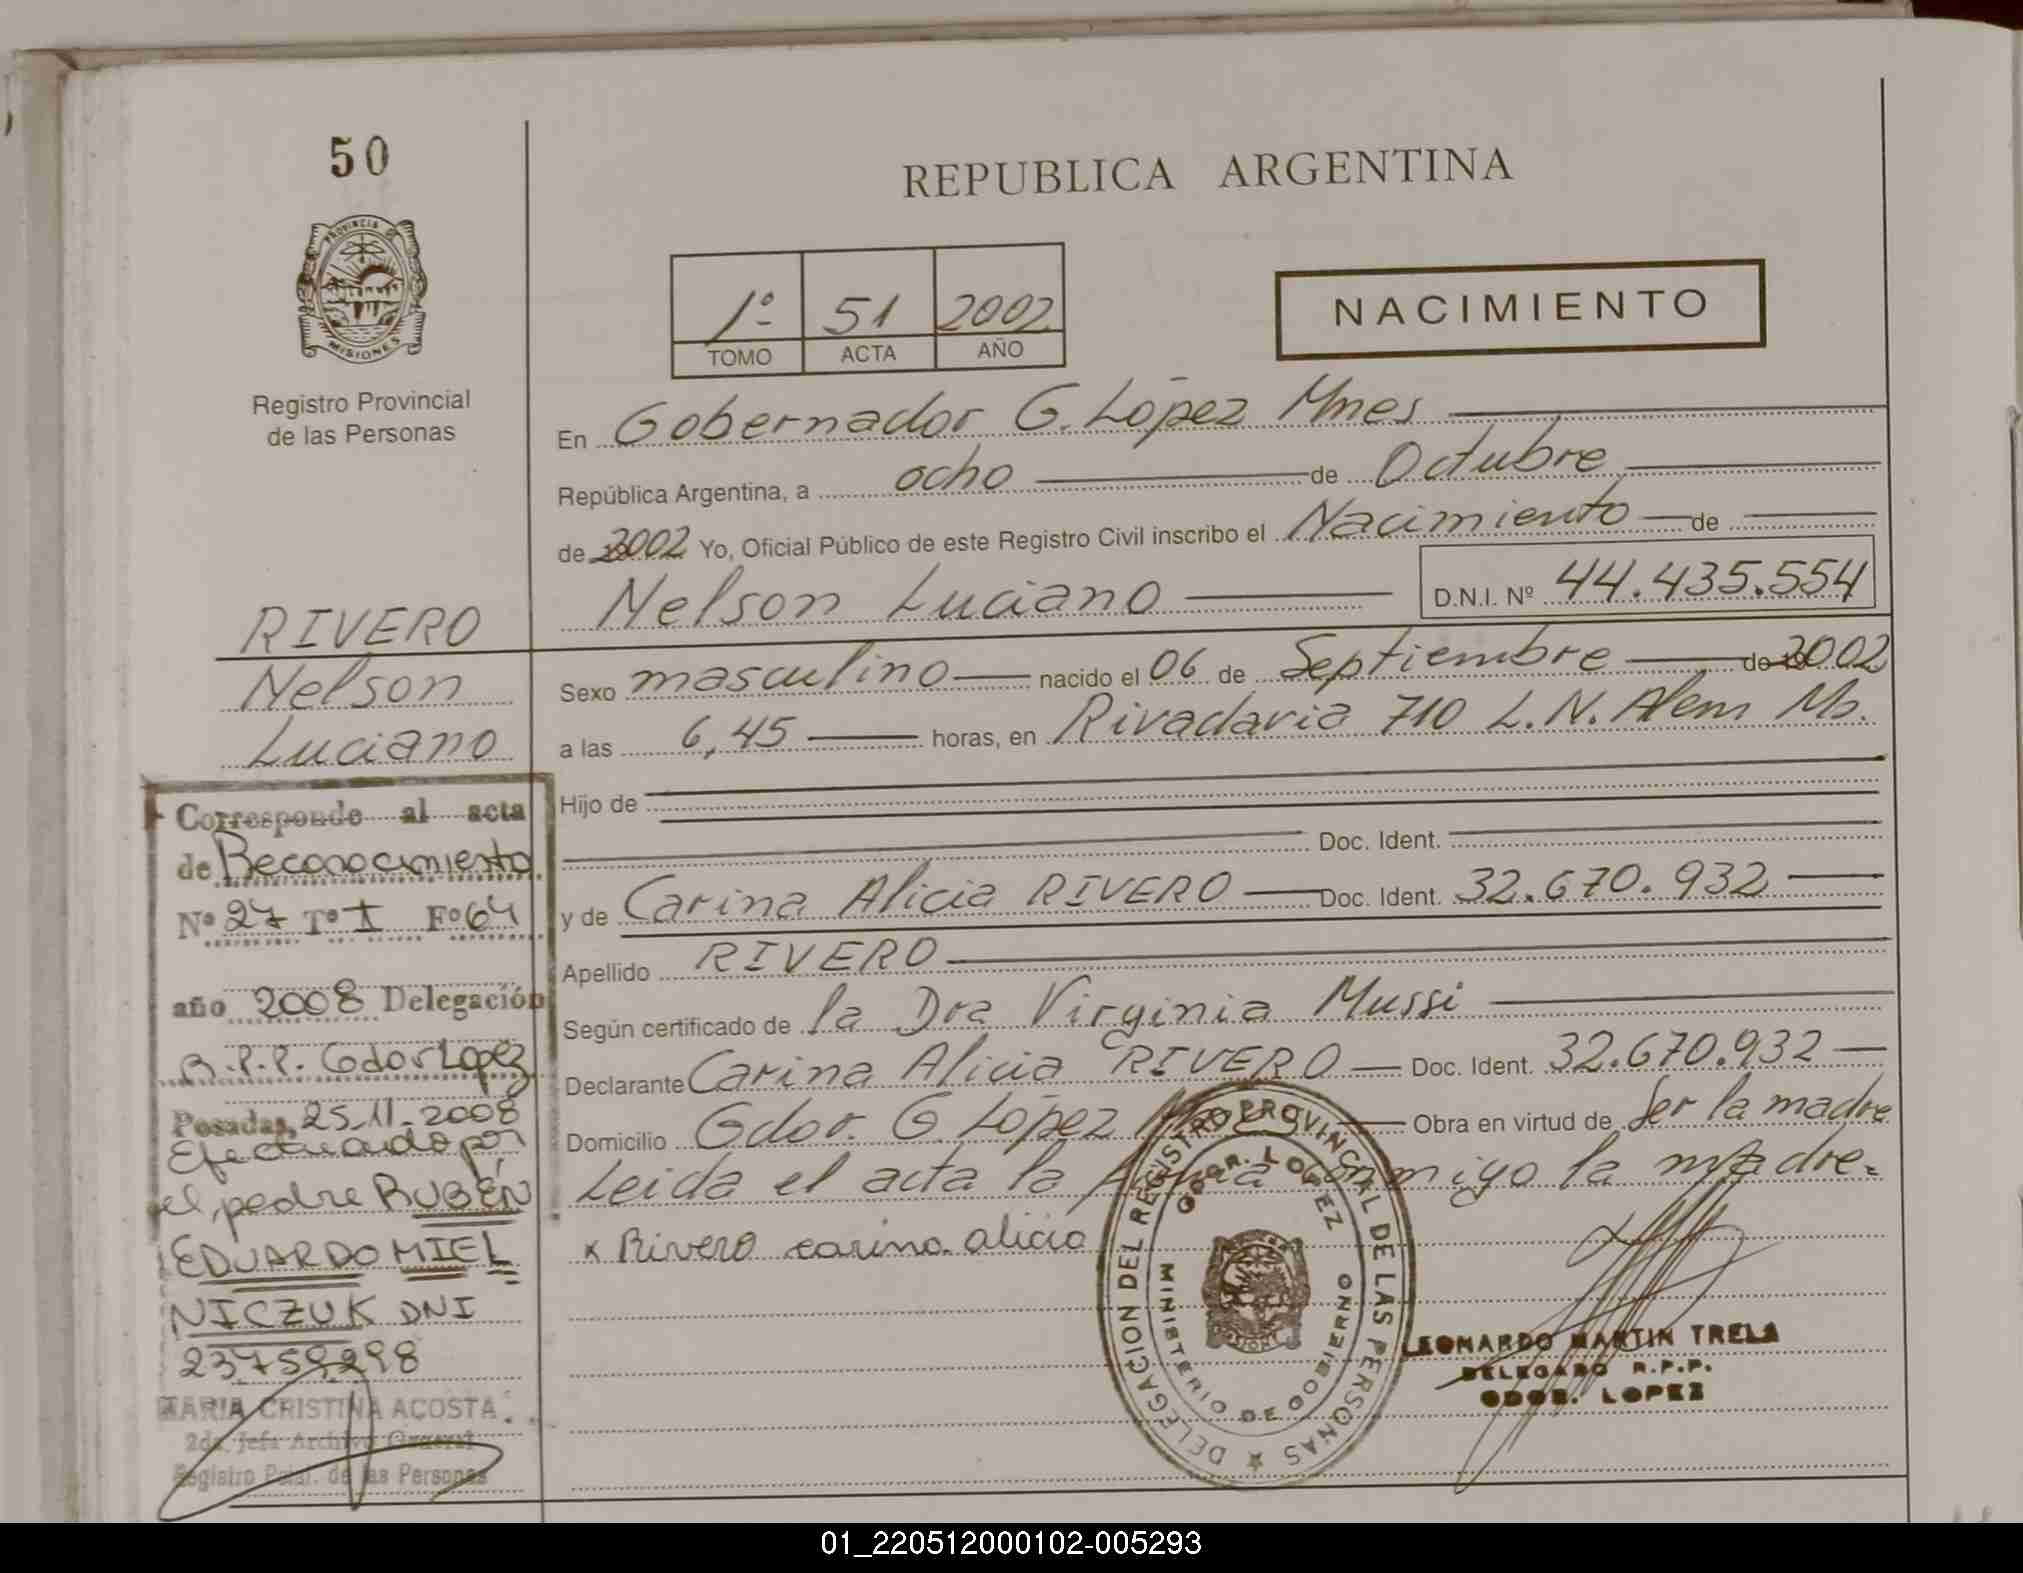 50
PROVINCIA DE
MISIONES
Registro Provincial
de las Personas
RIVERO
Nelson
Luciano
Corresponde al acta
de Reconocimiento
Nº 27 Tº I Fº 64
año 2008 Delegación
R.P.P. Gdor Lopez
Posadas, 25-11-2008
Efectuado por
el padre RUBÉN
EDUARDO MIEL
NICZUK DNI
23759298
MARIA CRISTINA ACOSTA
2da. Jefa Archivo General
Registro Pcial. de las Personas
REPUBLICA ARGENTINA
1º 51 2002
TOMO ACTA AÑO
NACIMIENTO
En Gobernador G. López Mnes
República Argentina, a ocho de Octubre
de 2002 Yo, Oficial Público de este Registro Civil inscribo el Nacimiento de
Nelson Luciano D.N.I. Nº 44.435.554
Sexo masculino nacido el 06 de Septiembre de 2002
a las 6,45 horas, en Rivadavia 710 L.N. Alem Ms.
Hijo de
Doc. Ident.
y de Carina Alicia RIVERO Doc. Ident. 32.670.932
Apellido RIVERO
Según certificado de la Dra Virginia Mussi
Declarante Carina Alicia RIVERO Doc. Ident. 32.670.932
Domicilio Gdor. G. López Obra en virtud de Ser la madre
Leida el acta la firma conmigo la madre.
x Rivero carina alicia
DELEGACION DEL REGISTRO PROVINCIAL DE LAS PERSONAS
GDOR. LOPEZ
MINISTERIO DE GOBIERNO
LEONARDO MARTIN TRELA
DELEGADO R.P.P.
GDOR. LOPEZ
01_220512000102-005293